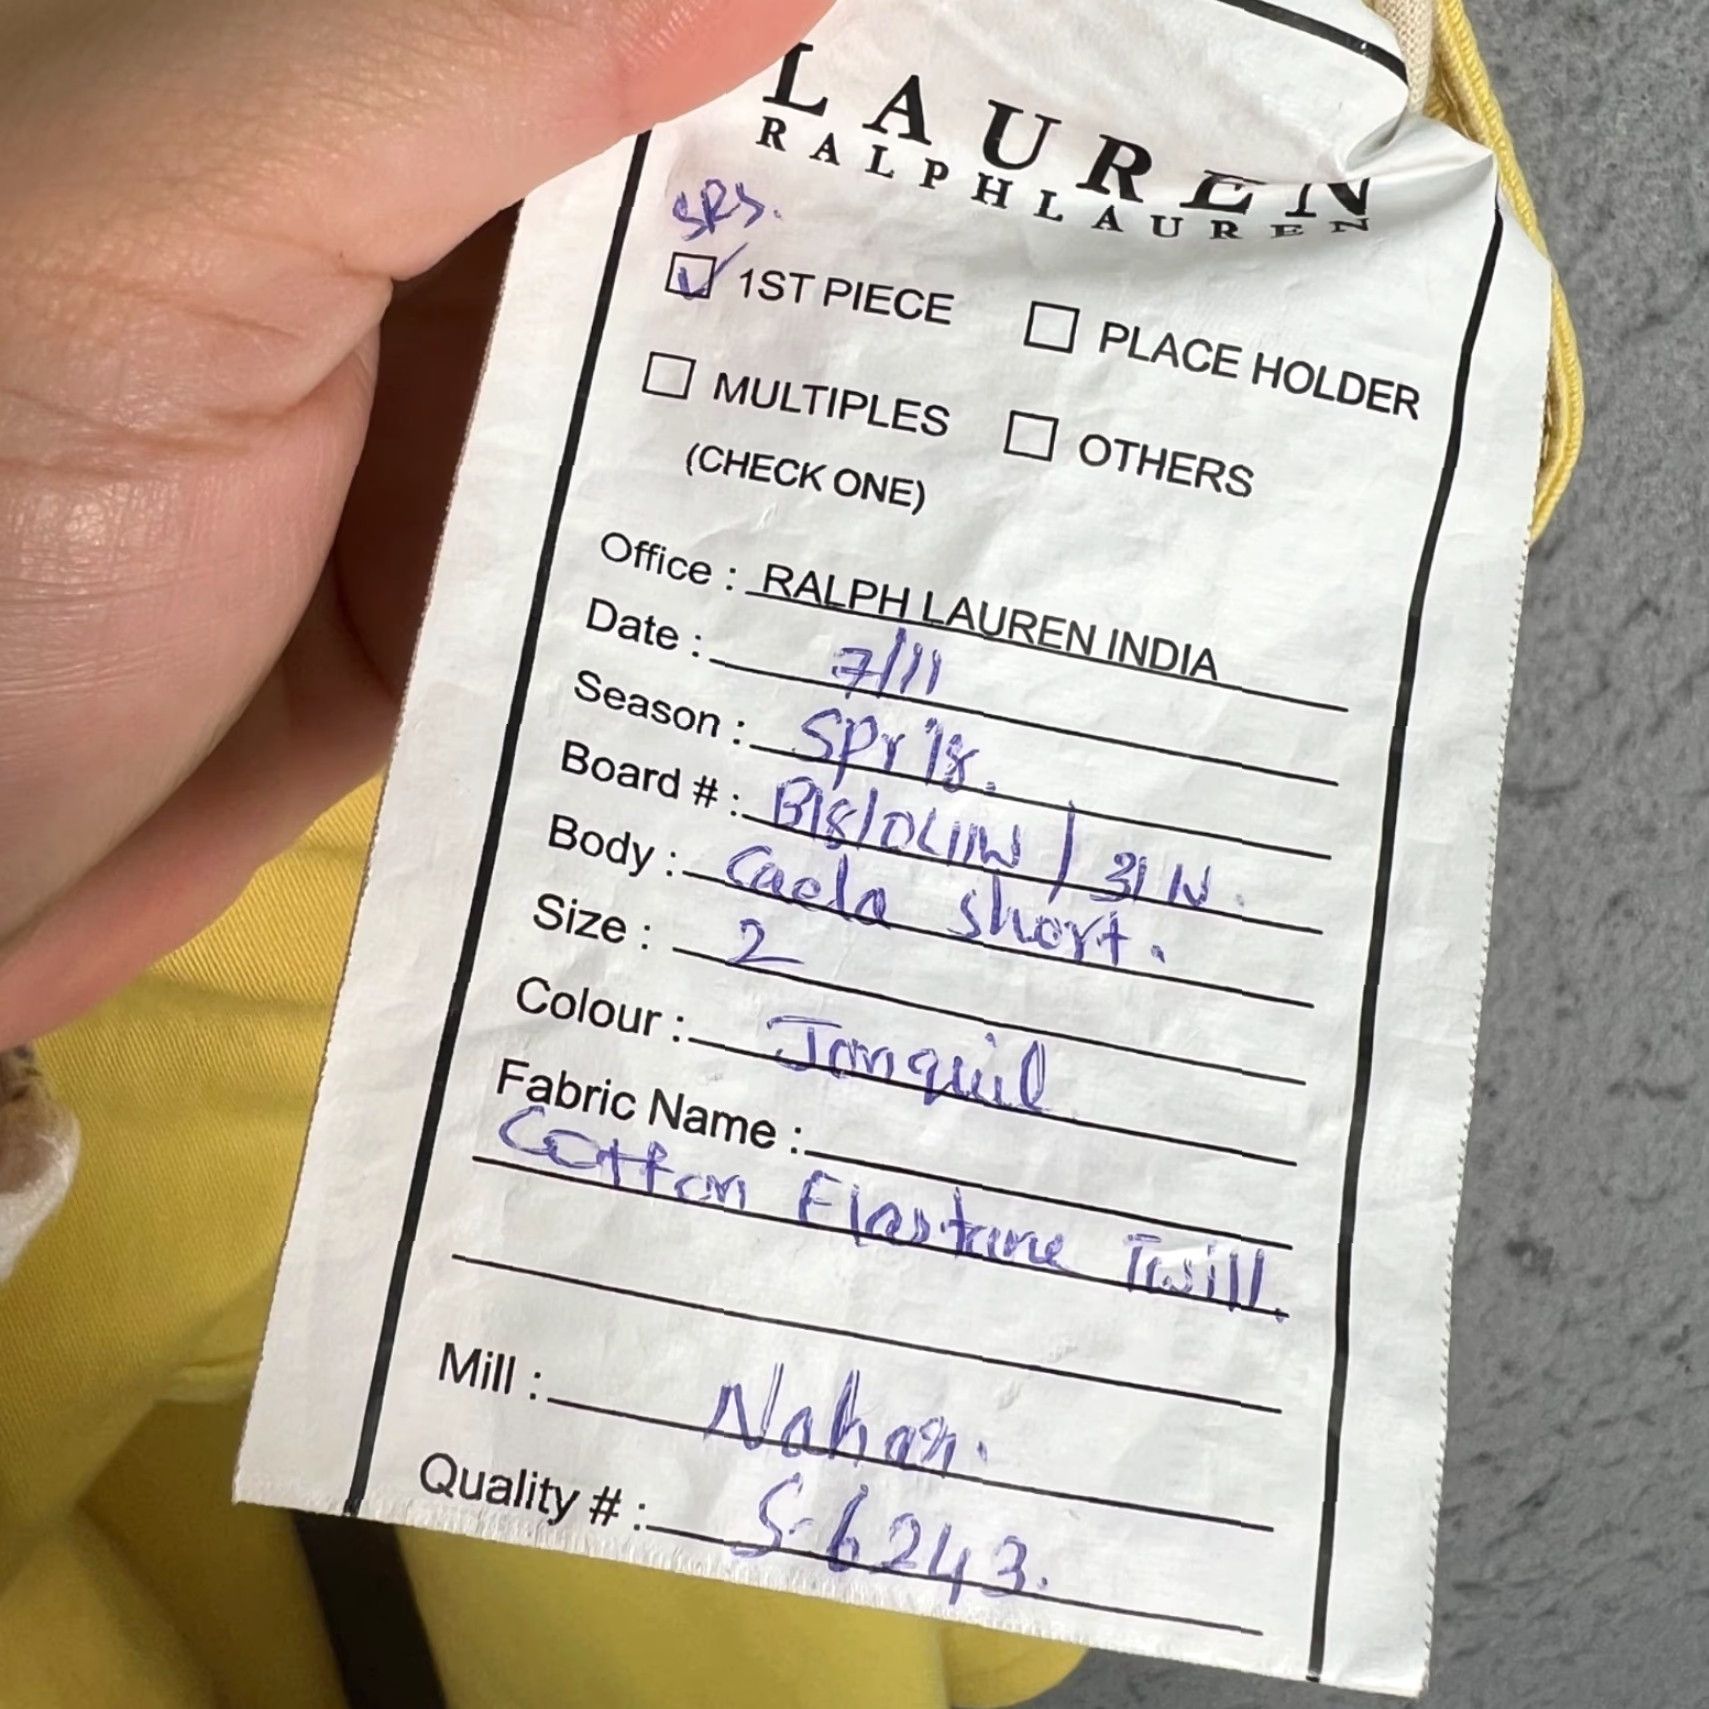 LAUREN
RALPH LAUREN
SRS.
1ST PIECE PLACE HOLDER
MULTIPLES OTHERS
(CHECK ONE)
Office : RALPH LAUREN INDIA
Date : 7/11
Season : Spr '18.
Board # : B18/OLIIN / 31 N.
Body : Caela short.
Size : 2
Colour : Jonquil
Fabric Name :
Cotton Elastane Twill.
Mill : Nahar.
Quality # : S-6243.